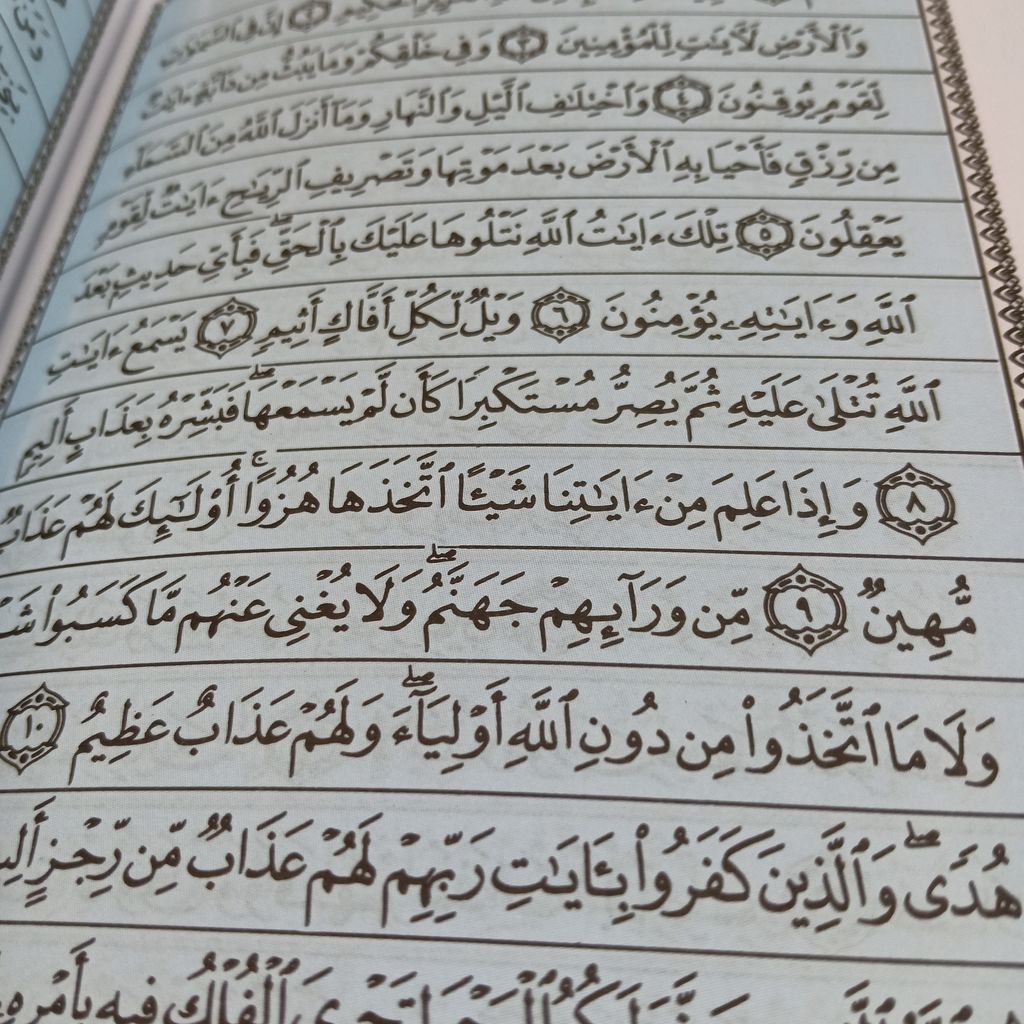 وَٱلْأَرْضِ لَـَٔايَـٰتٍ لِّلْمُؤْمِنِينَ ٣ وَفِى خَلْقِكُمْ وَمَا يَبُثُّ مِن دَآبَّةٍ ءَايَـٰتٌ
لِّقَوْمٍ يُوقِنُونَ ٤ وَٱخْتِلَـٰفِ ٱلَّيْلِ وَٱلنَّهَارِ وَمَآ أَنزَلَ ٱللَّهُ مِنَ ٱلسَّمَآءِ
مِن رِّزْقٍ فَأَحْيَا بِهِ ٱلْأَرْضَ بَعْدَ مَوْتِهَا وَتَصْرِيفِ ٱلرِّيَـٰحِ ءَايَـٰتٌ لِّقَوْمٍ
يَعْقِلُونَ ٥ تِلْكَ ءَايَـٰتُ ٱللَّهِ نَتْلُوهَا عَلَيْكَ بِٱلْحَقِّ ۖ فَبِأَىِّ حَدِيثٍۭ بَعْدَ
ٱللَّهِ وَءَايَـٰتِهِۦ يُؤْمِنُونَ ٦ وَيْلٌ لِّكُلِّ أَفَّاكٍ أَثِيمٍ ٧ يَسْمَعُ ءَايَـٰتِ
ٱللَّهِ تُتْلَىٰ عَلَيْهِ ثُمَّ يُصِرُّ مُسْتَكْبِرًا كَأَن لَّمْ يَسْمَعْهَا ۖ فَبَشِّرْهُ بِعَذَابٍ أَلِيمٍ
٨ وَإِذَا عَلِمَ مِنْ ءَايَـٰتِنَا شَيْـًٔا ٱتَّخَذَهَا هُزُوًا ۚ أُو۟لَـٰٓئِكَ لَهُمْ عَذَابٌ
مُّهِينٌ ٩ مِّن وَرَآئِهِمْ جَهَنَّمُ ۖ وَلَا يُغْنِى عَنْهُم مَّا كَسَبُوا۟
وَلَا مَا ٱتَّخَذُوا۟ مِن دُونِ ٱللَّهِ أَوْلِيَآءَ ۖ وَلَهُمْ عَذَابٌ عَظِيمٌ ١٠
هُدًى ۖ وَٱلَّذِينَ كَفَرُوا۟ بِـَٔايَـٰتِ رَبِّهِمْ لَهُمْ عَذَابٌ مِّن رِّجْزٍ
ٱلْفُلْكُ فِيهِ بِأَمْرِهِۦ